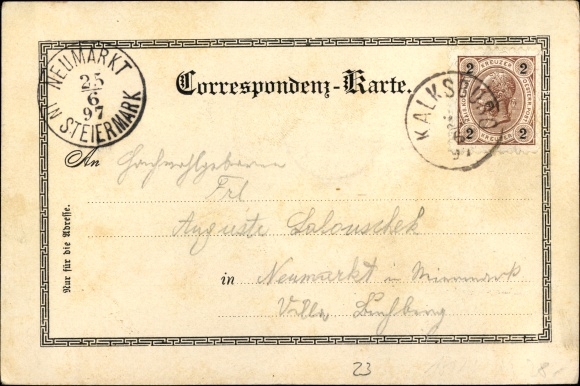 NEUMARKT
25
6
97
IN STEIERMARK
Correspondenz-Karte.
2 KREUZER 2
2 KREUZER 2
KALKSBURG
An Hochwohlgeboren
Frl
Auguste
in Neumarkt in
Villa
Nur für die Adresse.
23